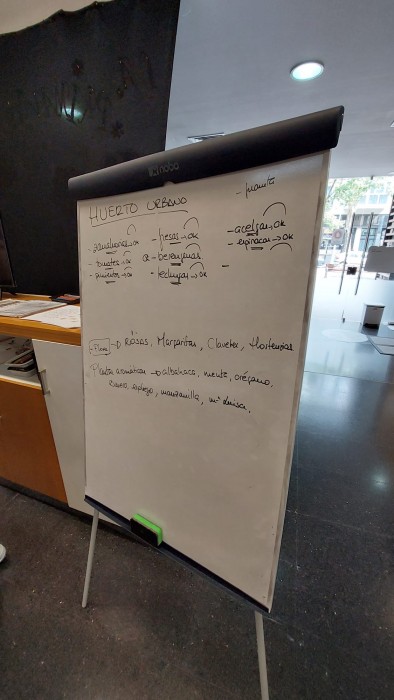 nobo
HUERTO URBANO
- zanahorias → ok
- tomates → ok
- pimientos → ok
- fresas → ok
- berenjenas
- lechugas → ok
- acelgas → ok
- espinacas → ok
-
- Flores → ROSAS, Margaritas, Claveles, Hortensias
- Plantas aromáticas → albahaca, menta, orégano,
romero, espliego, manzanilla, mª Luisa,